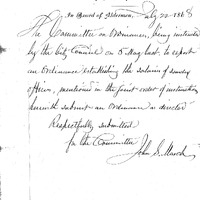 In Board of Aldermen, July 22-1868
The Committee on Ordinances, being instructed
by the City Council on 5 May last, to report
an Ordinance establishing the salaries of sundry
officers, mentioned in the joint order of instruction
herewith submit an Ordinance as directed
Respectfully submitted
for the Committee
John S. March